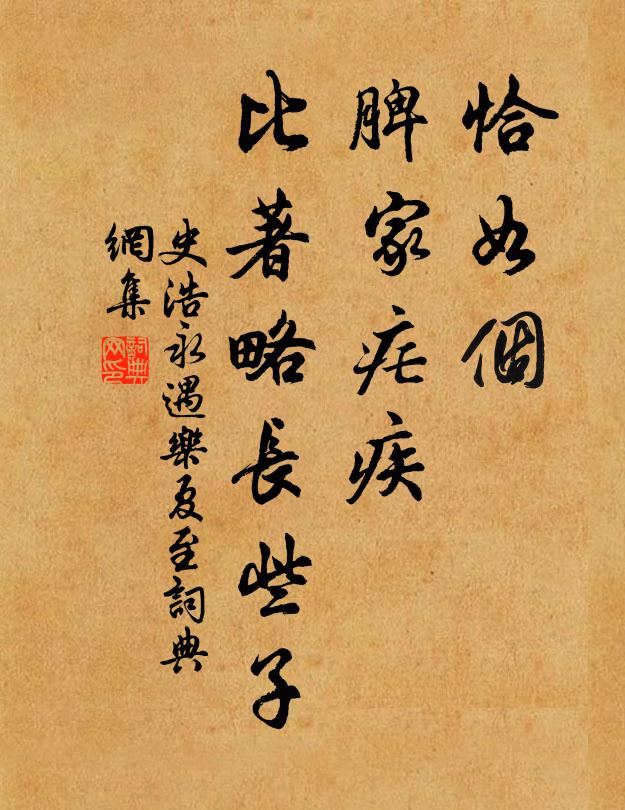 恰如個
脾家疟疾
比著略長些子
史浩永遇樂夏至詞典
網集
詞典
网印